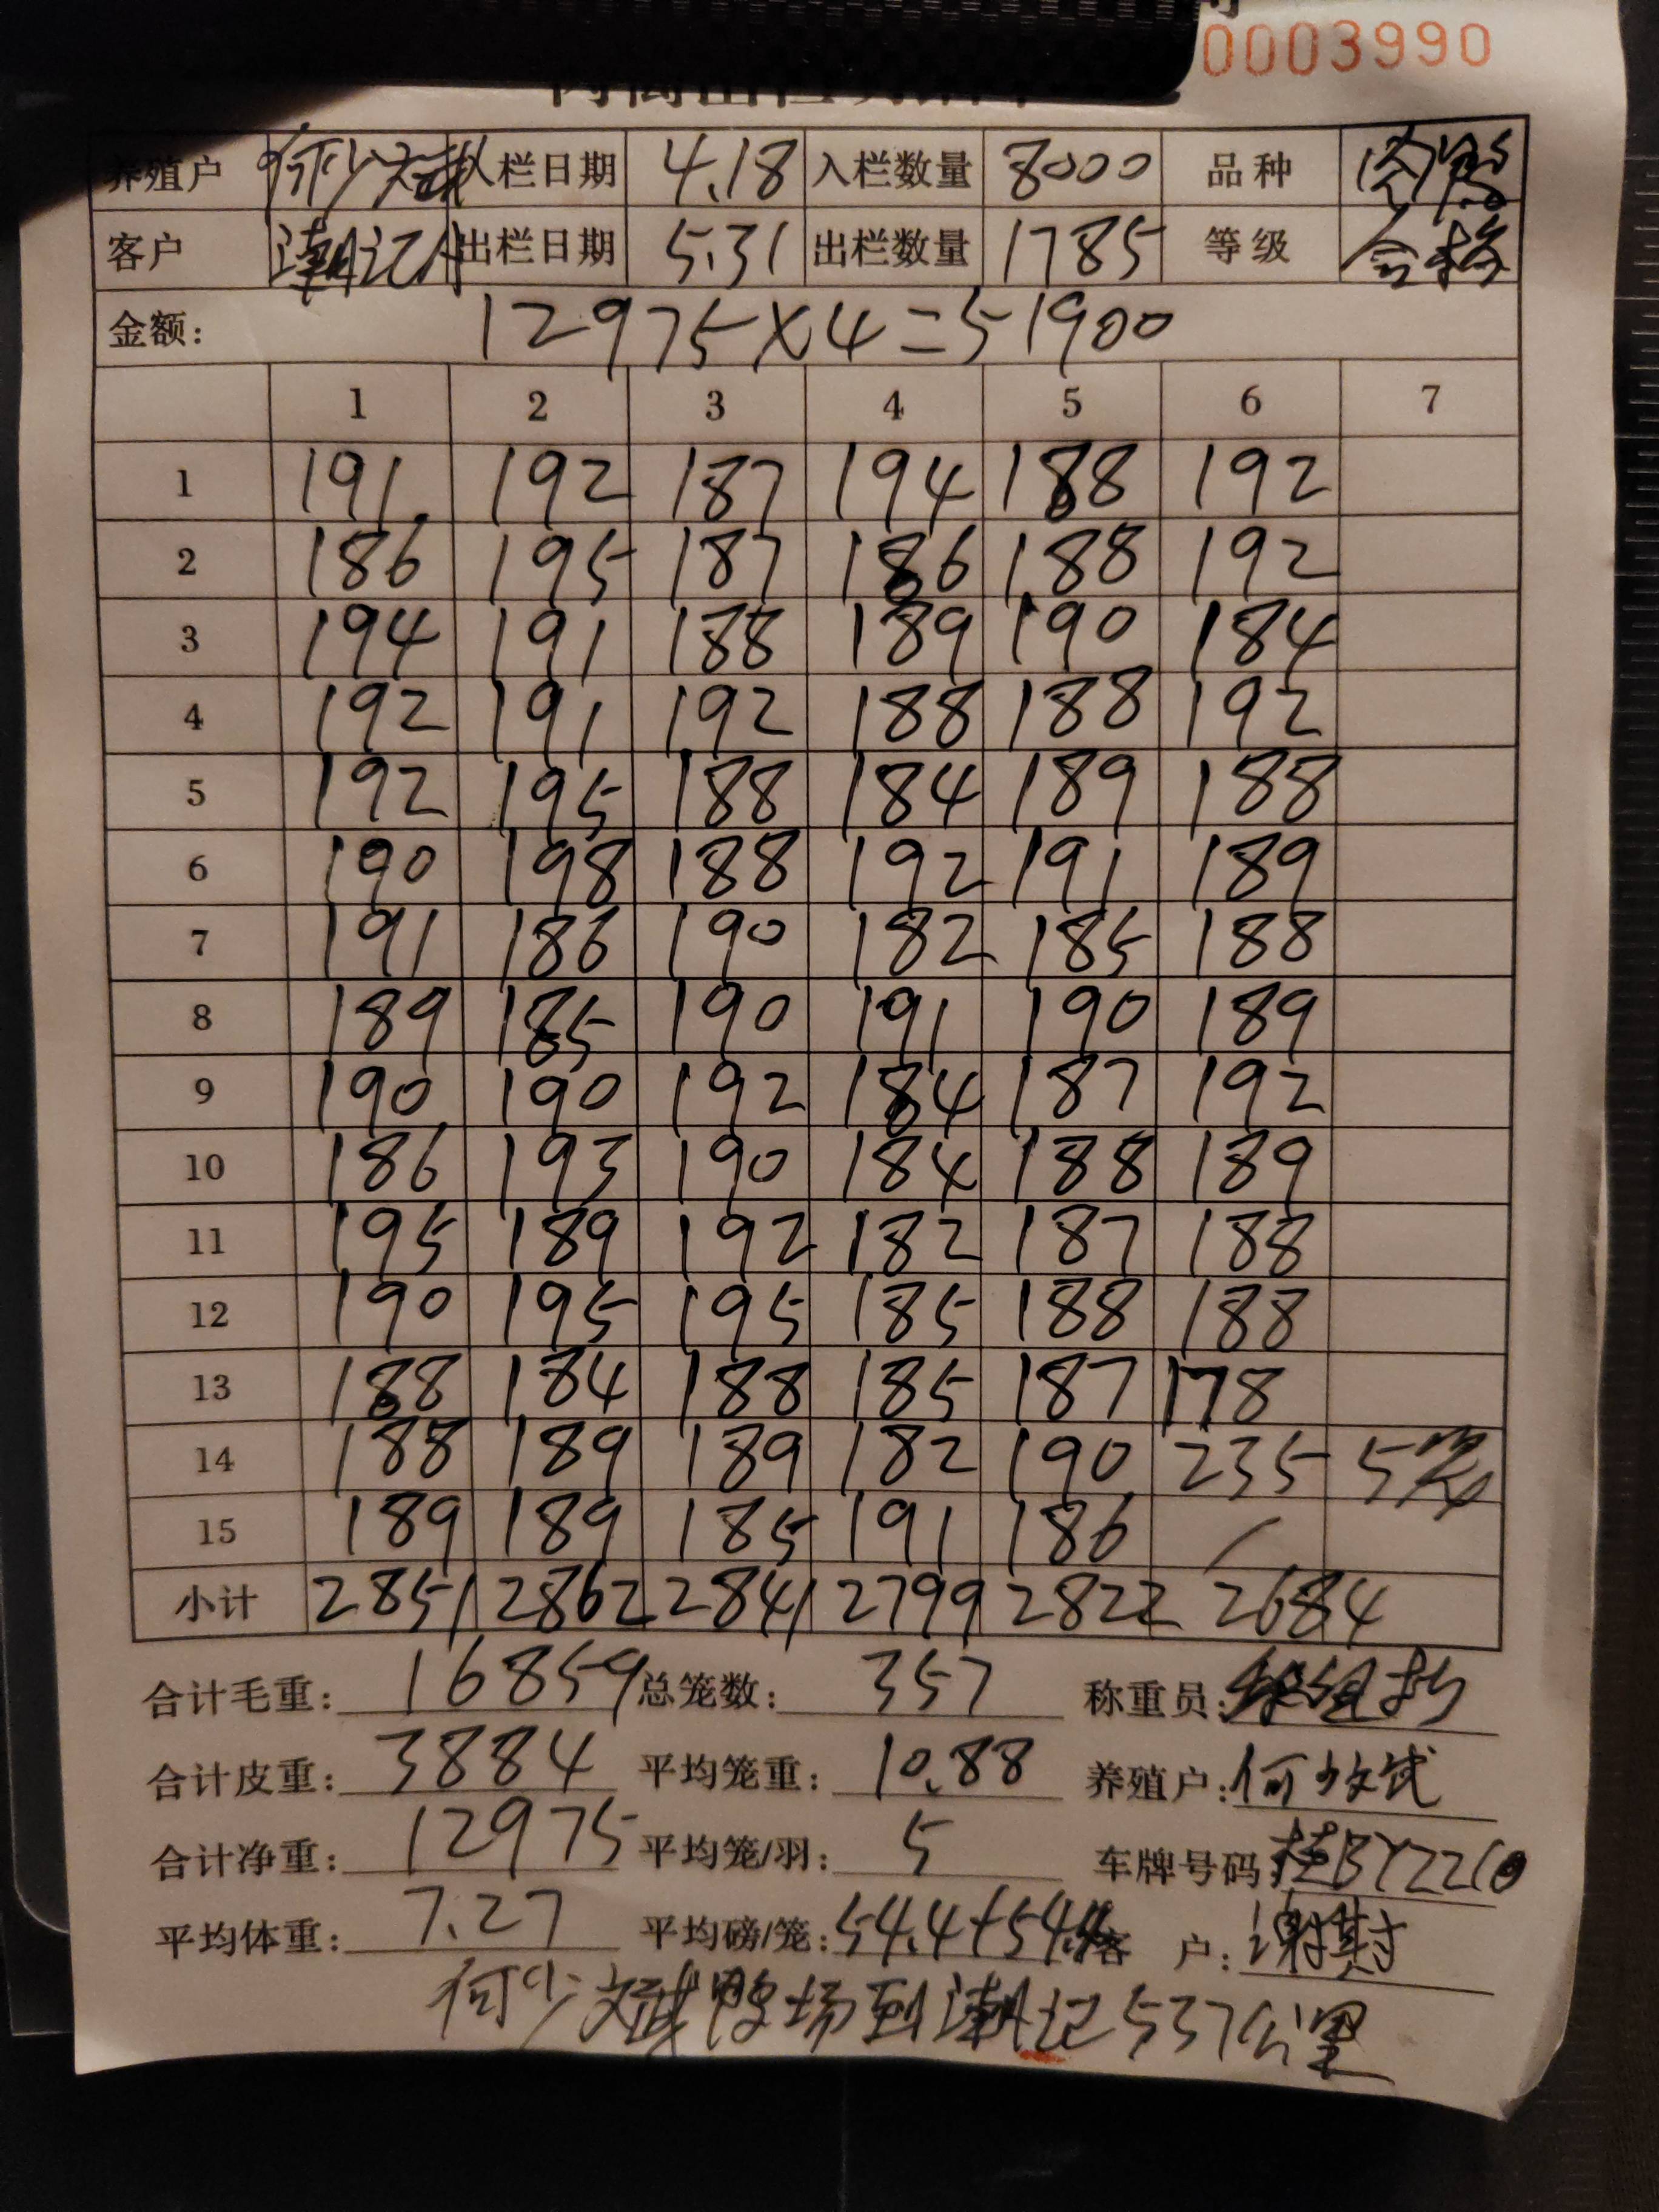 0003990
养殖户 何少文武 入栏日期 4.18 入栏数量 8000 品种 肉鸭
客户 潮记 出栏日期 5.31 出栏数量 1785 等级 合格
金额: 12975×4=51900
1 2 3 4 5 6 7
1 191 192 187 194 188 192
2 186 195 187 186 188 192
3 194 191 188 189 190 184
4 192 191 192 188 188 192
5 192 195 188 184 189 188
6 190 198 188 192 191 189
7 191 186 190 182 185 188
8 189 185 190 191 190 189
9 190 190 192 184 187 192
10 186 193 190 184 188 189
11 195 189 192 182 187 188
12 190 195 195 185 188 188
13 188 184 188 185 187 178
14 188 189 189 182 190 235 5笼
15 189 189 185 191 186 /
小计 2851 2862 2841 2799 2822 2684
合计毛重: 16859 总笼数: 357 称重员:
合计皮重: 3884 平均笼重: 10.88 养殖户: 何少文武
合计净重: 12975 平均笼/羽: 5 车牌号码:
平均体重: 7.27 平均磅/笼: 54.4+54.4 客户:
何少文武鸭场到潮记537公里